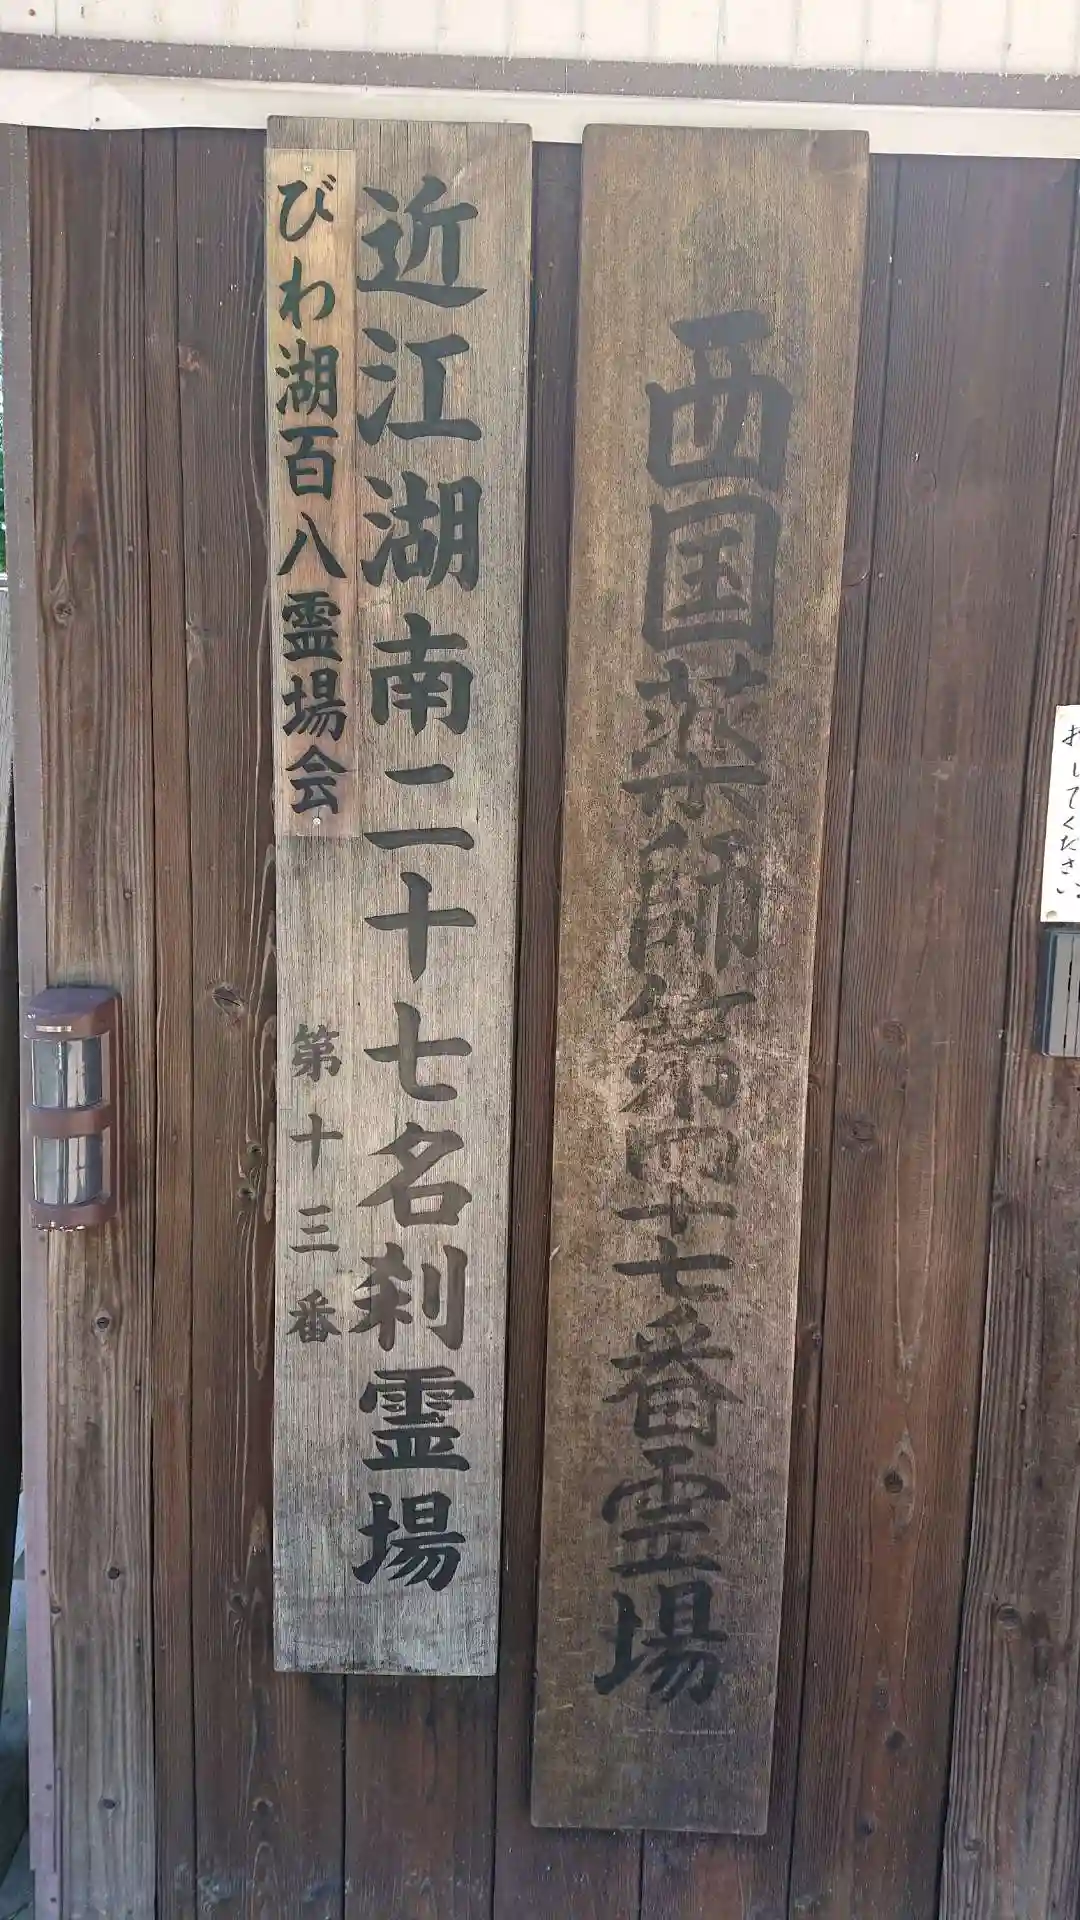 西国薬師第四十七番霊場
近江湖南二十七名刹霊場
びわ湖百八霊場会
第十三番
してください